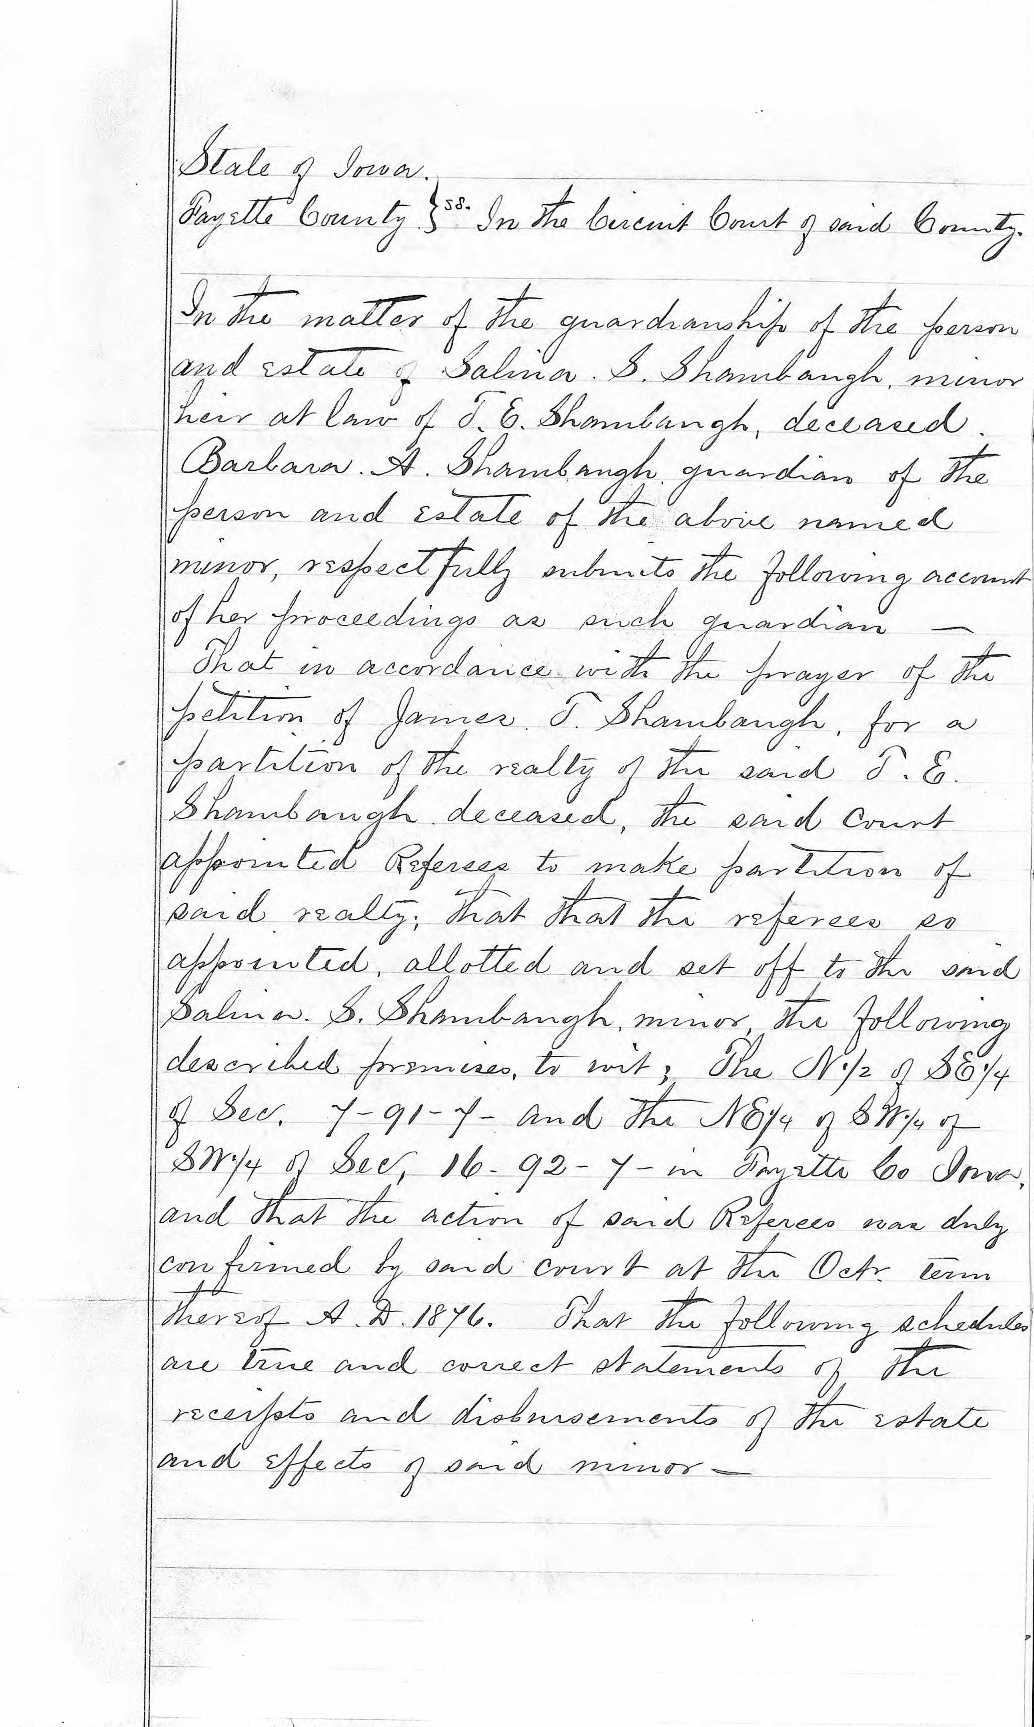 State of Iowa.
Fayette County } ss. In the Circuit Court of said County.
In the matter of the guardianship of the person
and estate of Salina. S. Shambaugh, minor
heir at law of T. E. Shambaugh, deceased.
Barbara. A. Shambaugh, guardian of the
person and estate of the above named
minor, respectfully submits the following account
of her proceedings as such guardian —
That in accordance with the prayer of the
petition of James. T. Shambaugh, for a
partition of the realty of the said T. E.
Shambaugh deceased, the said Court
appointed Referees to make partition of
said realty; that that the referees so
appointed, allotted and set off to the said
Salina. S. Shambaugh, minor, the following
described premises, to wit; The N.1/2 of SE.1/4
of Sec. 7-91-7- and the NE1/4 of SW.1/4 of
SW.1/4 of Sec, 16-92-7- in Fayette Co Iowa,
and that the action of said Referees was duly
confirmed by said court at the Octr. term
thereof A. D. 1876. That the following schedules
are true and correct statements of the
receipts and disbursements of the estate
and effects of said minor —